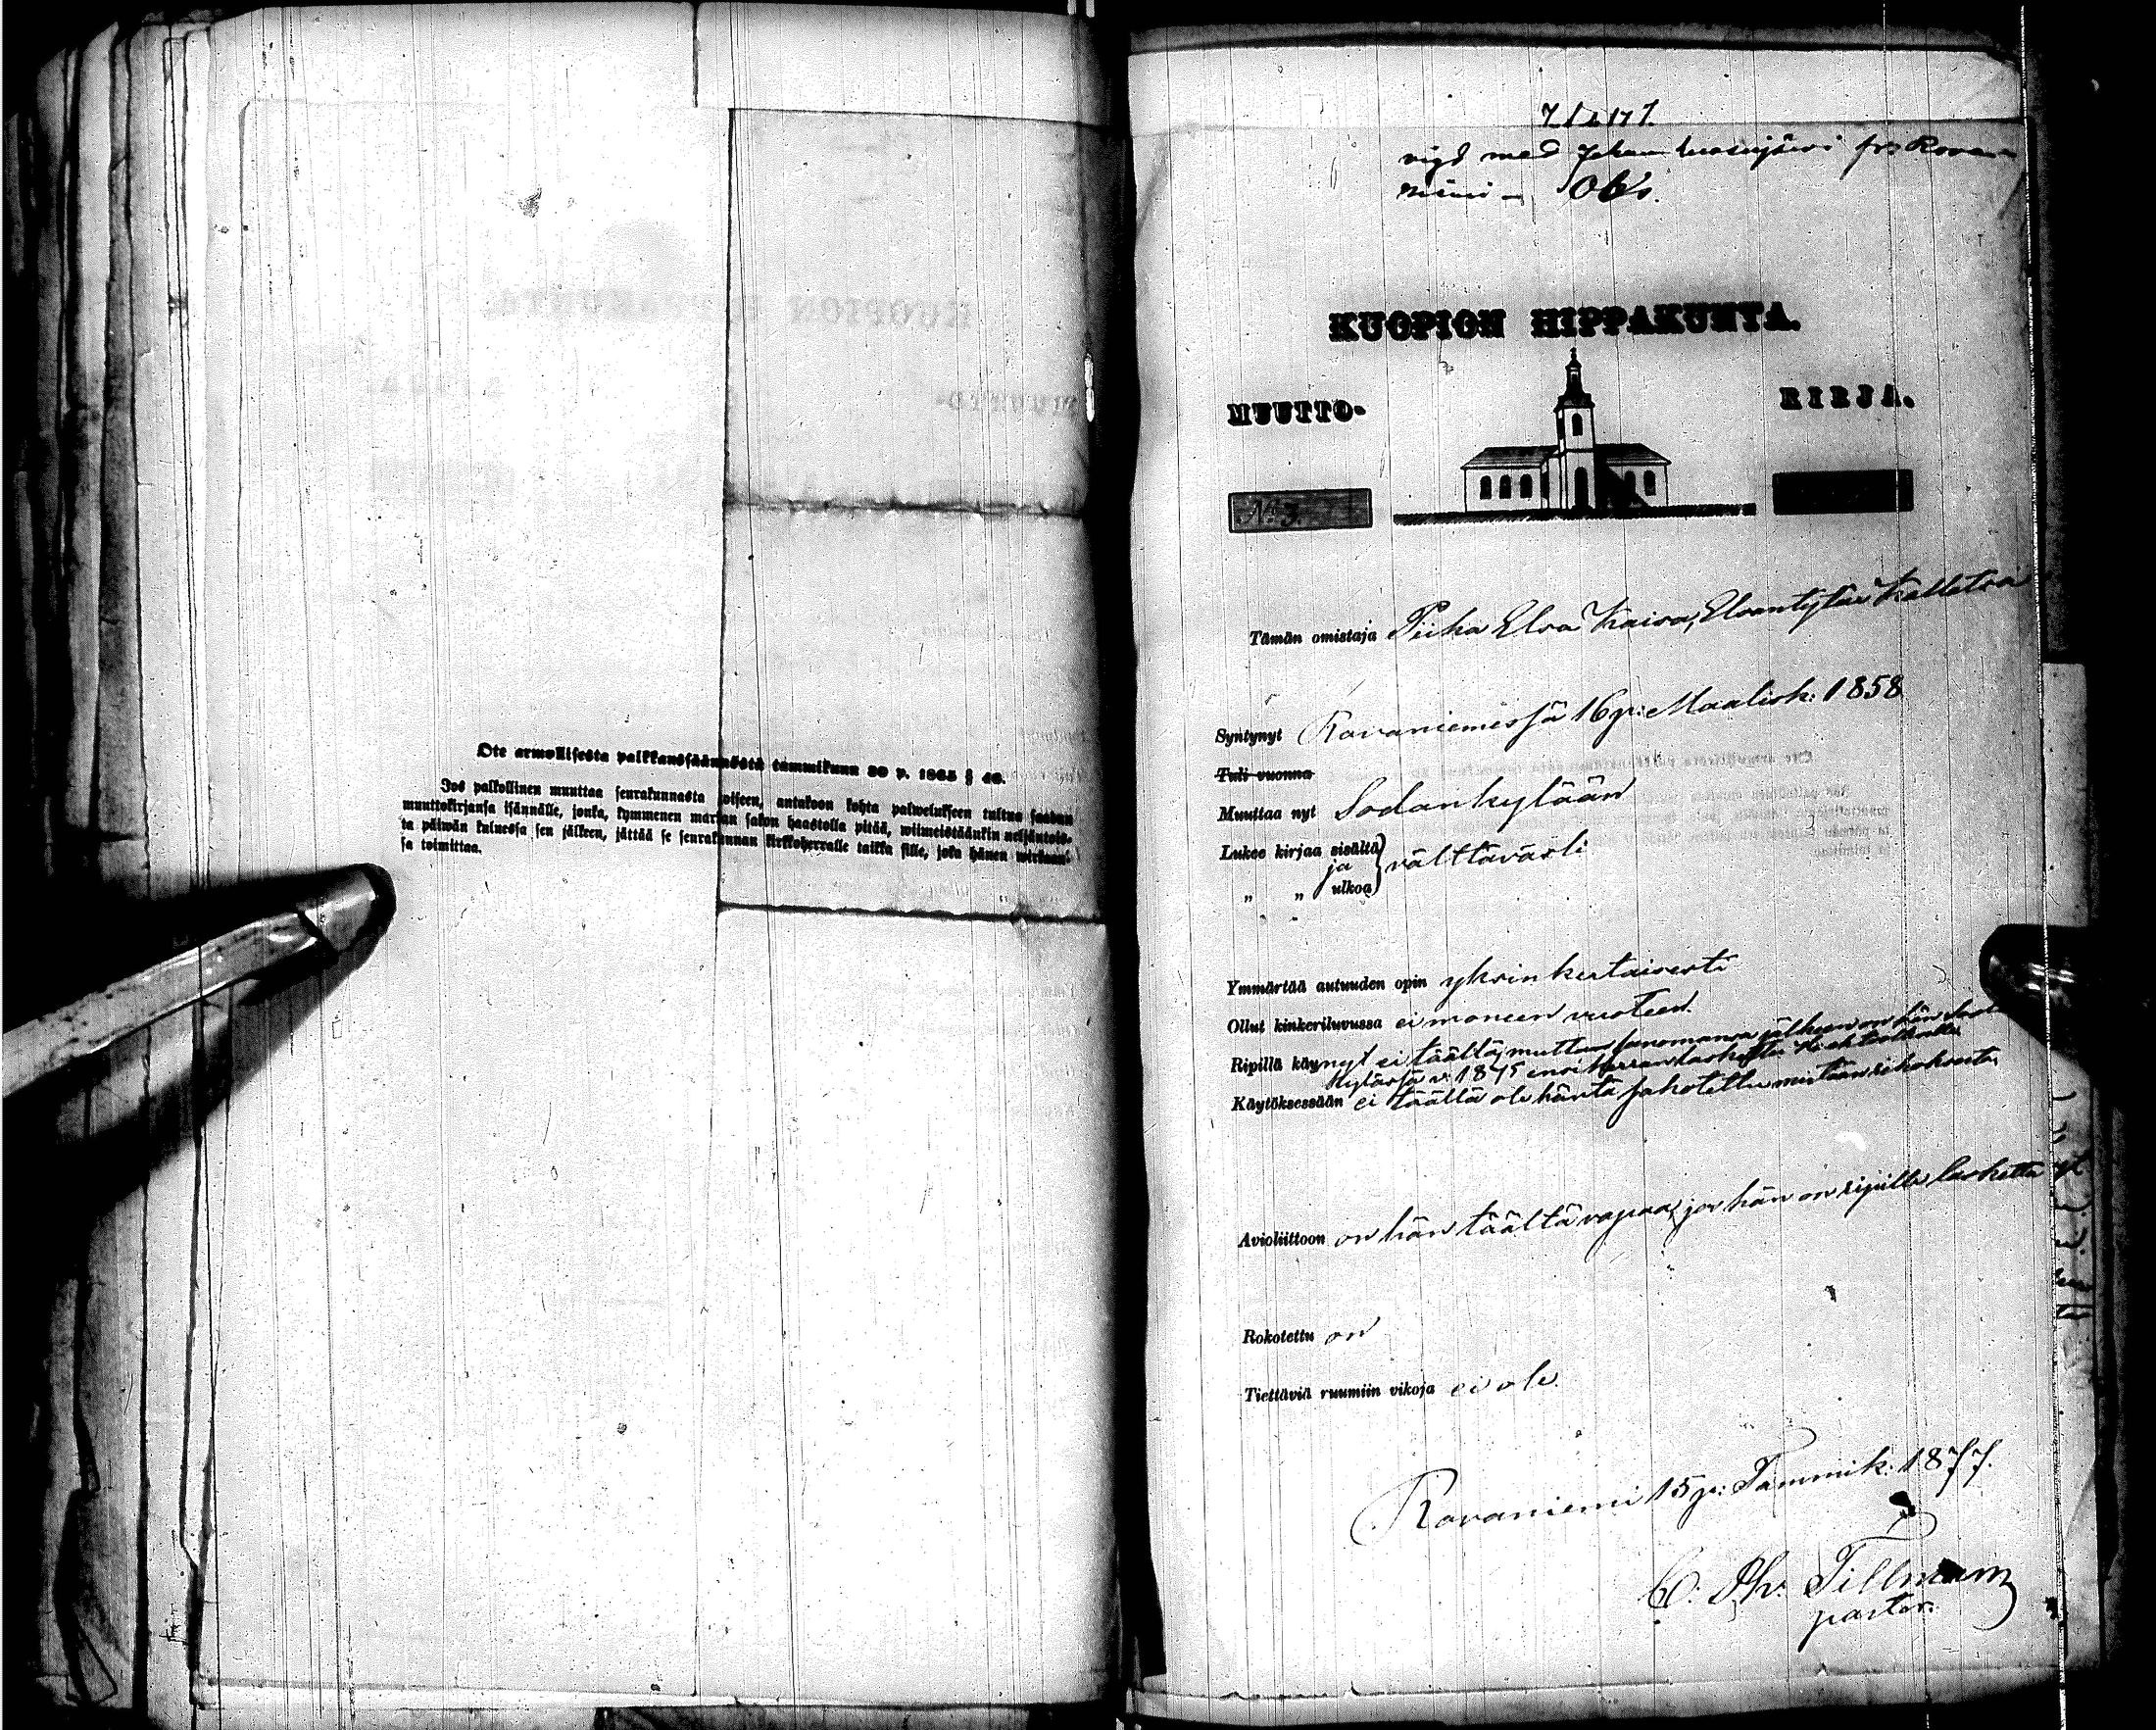 Ote armollisesta palkkaussäännöstä tammikuun 30 p. 1865 § 46.
Jos palkollinen muuttaa seurakunnasta toiseen, antakoon kohta palwelukseen tultua saadun
muuttokirjansa isännälle, jonka, kymmenen markan sakon haastolla pitää, wiimeistäänkin neljäntois-
ta päiwän kuluessa sen jälkeen, jättää se seurakunnan kirkkoherralle taikka sille, joka hänen wirkaan-
sa toimittaa.
vigd med Johan fr: Rova-
niemi - Obs.
KUOPION HIPPAKUNTA.
MUUTTO- KIRJA.
No 3.
Tämän omistaja Piika Elsa Kaisa,
Syntynyt Rovaniemessä 16 p: Maalisk: 1858
Tuli vuonna
Muuttaa nyt Sodankylään
Lukee kirjaa sisältä
ja välttävästi
„ „ ulkoa
Ymmärtää autuuden opin yksinkertaisesti
Ollut kinkeriluvussa ei moneen vuoteen.
Ripillä käynyt ei täältä, mutta sanomansa jälkeen on hän
kylässä v. 1875 ensi Herran
Käytöksessään ei täältä ole häntä mistään rikoksesta
Avioliittoon on hän täältä vapaa, jos hän on ripille laskettu
Rokotettu on
Tiettäviä ruumiin vikoja ei ole.
Rovaniemi 15 p: Tammik: 1877.
C: Th: Tillman
pastor.